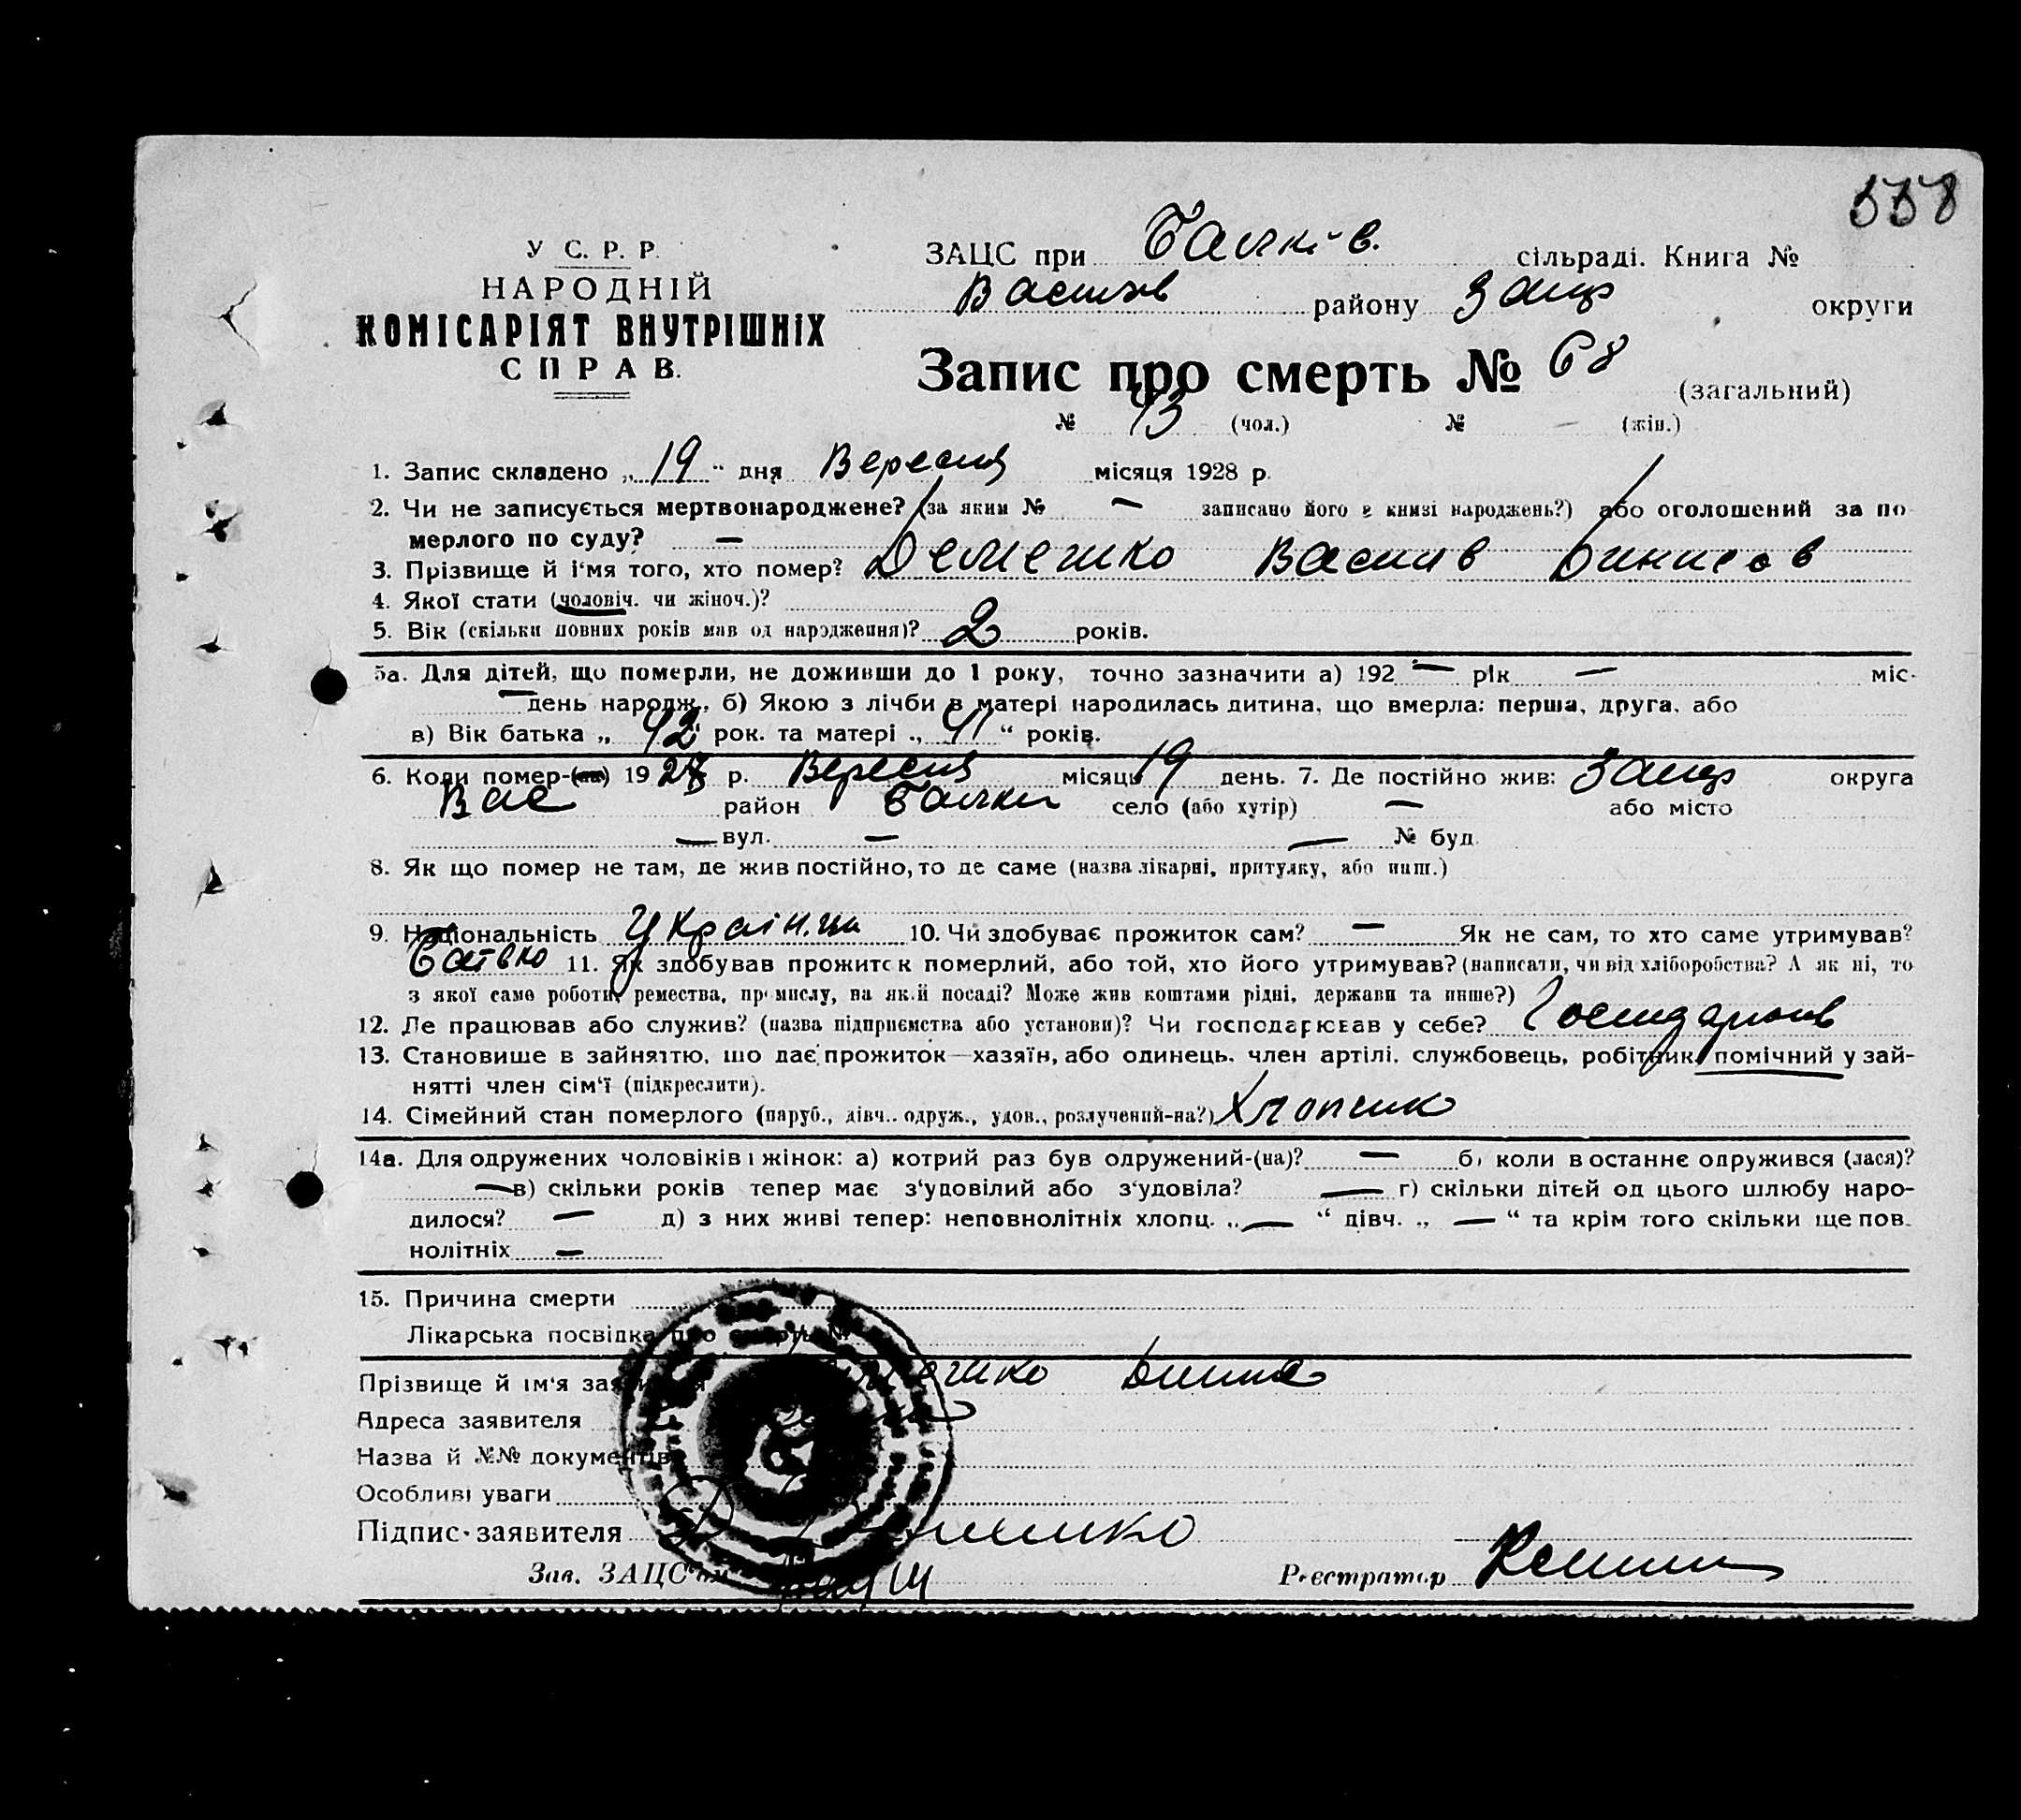 558
У С. Р. Р.
НАРОДНІЙ
КОМІСАРІЯТ ВНУТРІШНІХ
СПРАВ.
ЗАЦС при Балків. сільраді. Книга №
Васил району Запор округи
Запис про смерть № 68 (загальний)
№ 43 (чол.) № — (жін.)
1. Запис складено „19" дня Вересня місяця 1928 р.
2. Чи не записується мертвонароджене? (за яким № — записано його в книзі народжень?) або оголошений за по
мерлого по суду? —
3. Прізвище й ім'я того, хто помер? Демешко Василь
4. Якої стати (чоловіч. чи жіноч.)?
5. Вік (скільки повних років мав од народження)? 2 років.
5а. Для дітей, що померли, не доживши до 1 року, точно зазначити а) 192 — рік — міс.
— день народж., б) Якою з лічби в матері народилась дитина, що вмерла: перша, друга, або
в) Вік батька „42" рок. та матері „41" років.
6. Коли помер-(ла) 1928 р. Вересня місяць 19 день. 7. Де постійно жив: Запор округа
Вас район Балки село (або хутір) — або місто
— вул. — — № буд.
8. Як що помер не там, де жив постійно, то де саме (назва лікарні, притулку, або инш.)
9. Національність 10. Чи здобуває прожиток сам? — Як не сам, то хто саме утримував?
Батько 11. Як здобував прожиток померлий, або той, хто його утримував? (написати, чи від хліборобства? А як ні, то
з якої саме роботи, ремества, промислу, на якій посаді? Може жив коштами рідні, держави та инше?)
12. Де працював або служив? (назва підприємства або установи)? Чи господарював у себе? Господарював
13. Становище в зайняттю, що дає прожиток—хазяїн, або одинець, член артілі, службовець, робітник, помічний у зай-
нятті член сім'ї (підкреслити).
14. Сімейний стан померлого (паруб., дівч., одруж., удов., розлучений-на?) Хлопчик
14а. Для одружених чоловіків і жінок: а) котрий раз був одружений-(на)? — б) коли в останнє одружився (лася)?
— в) скільки років тепер має з'удовілий або з'удовіла? — г) скільки дітей од цього шлюбу наро-
дилося? — д) з них живі тепер: неповнолітніх хлопц. „—" дівч. „—" та крім того скільки ще пов-
нолітніх —
15. Причина смерти
Лікарська посвідка про смерть №
Прізвище й ім'я заявителя
Адреса заявителя
Назва й №№ документів
Особливі уваги
Підпис заявителя
Зав. ЗАЦС'ом Реєстратор